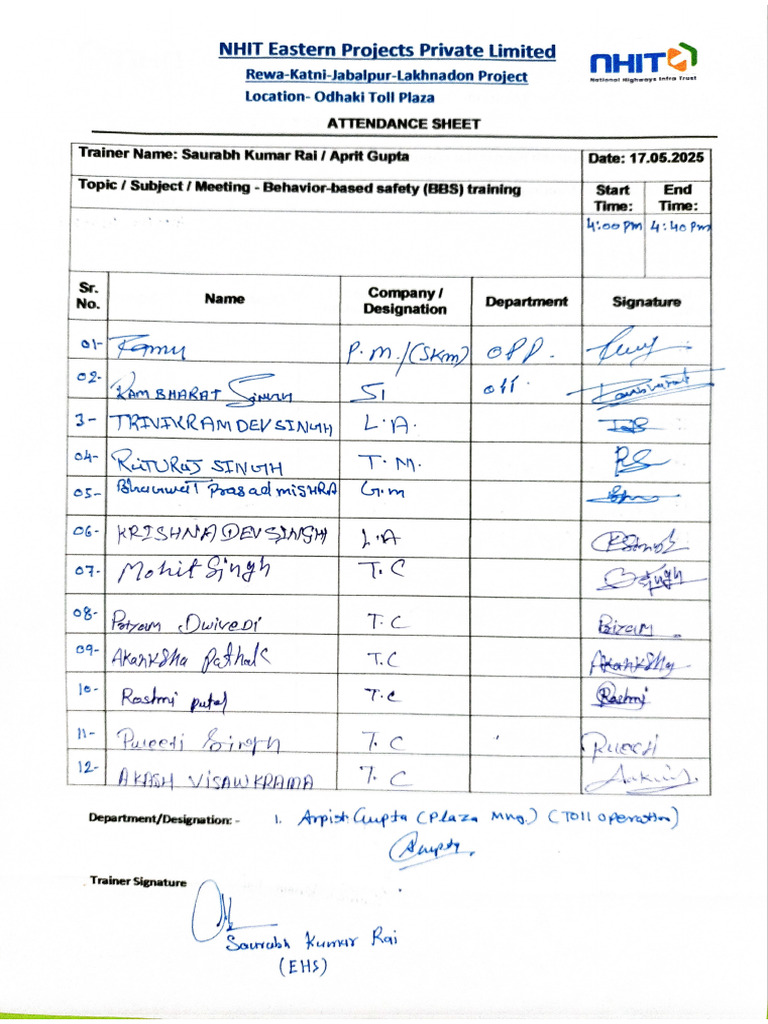 NHIT Eastern Projects Private Limited
Rewa-Katni-Jabalpur-Lakhnadon Project
Location- Odhaki Toll Plaza
NHIT
National Highways Infra Trust
ATTENDANCE SHEET
Trainer Name: Saurabh Kumar Rai / Aprit Gupta Date: 17.05.2025
Topic / Subject / Meeting - Behavior-based safety (BBS) training Start Time: End Time:
4:00 PM 4:40 PM
Sr. No. Name Company / Designation Department Signature
01- Ramu P.M./(SKM) OPP.
02- RAM BHARAT Singh SI Rambharat
3- TRIVIKRAM DEV SINGH L.A. TDS
04- RUTURAJ SINGH T.M. RS
05- Bhagwat Prasad MISHRA G.M
06- KRISHNA DEV SINGH L.A
07- Mohit Singh T.C Singh
08- Dwivedi T.C
09- Akanksha Pathak T.C Akanksha
10- Rashmi patel T.C Rashmi
11- Preeti Singh T.C Preeti
12- AKASH VISAWKRAMA T.C
Department/Designation: - 1. Arpit Gupta (Plaza Mng.) (Toll operation)
Gupta
Trainer Signature
Saurabh Kumar Rai
(EHS)